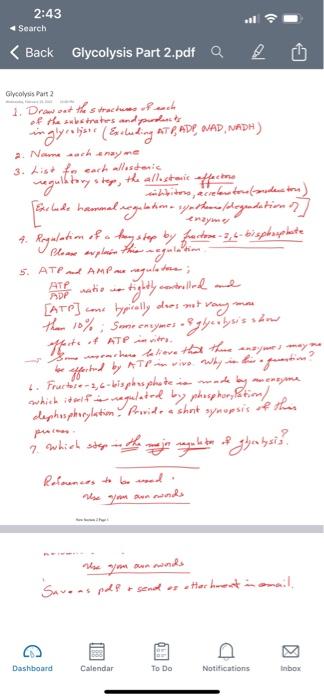 2:43
◄ Search
Back Glycolysis Part 2.pdf
Glycolysis Part 2
1. Draw out the structures of each
of the substrates and products
in glycolysis (Excluding ATP, ADP, NAD, NADH)
2. Name each enzyme
3. List for each allosteric
regulatory step, the allosteric effectors
inhibitors, accelerators
[Exclude hormonal regulation + synthesis/degradation of]
enzymes
4. Regulation of a key step by fructose-2,6-bisphosphate
Please explain this regulation.
5. ATP and AMP are regulators;
ATP
ADP ratio is tightly controlled and
[ATP] conc typically does not vary more
than 10%; Some enzymes of glycolysis show
effects of ATP in vitro.
Some researchers believe that these enzymes may not
be effected by ATP in vivo. Why is this question?
6. Fructose-2,6-bisphosphate is made by an enzyme
which itself is regulated by phosphorylation/
dephosphorylation. Provide a short synopsis of this
process.
7. Which step is the major regulator of glycolysis?
References to be used.
Use your own words
New Section 2 Page 1
Use your own words
Save as pdf + send as attachment in email.
Dashboard Calendar To Do Notifications Inbox